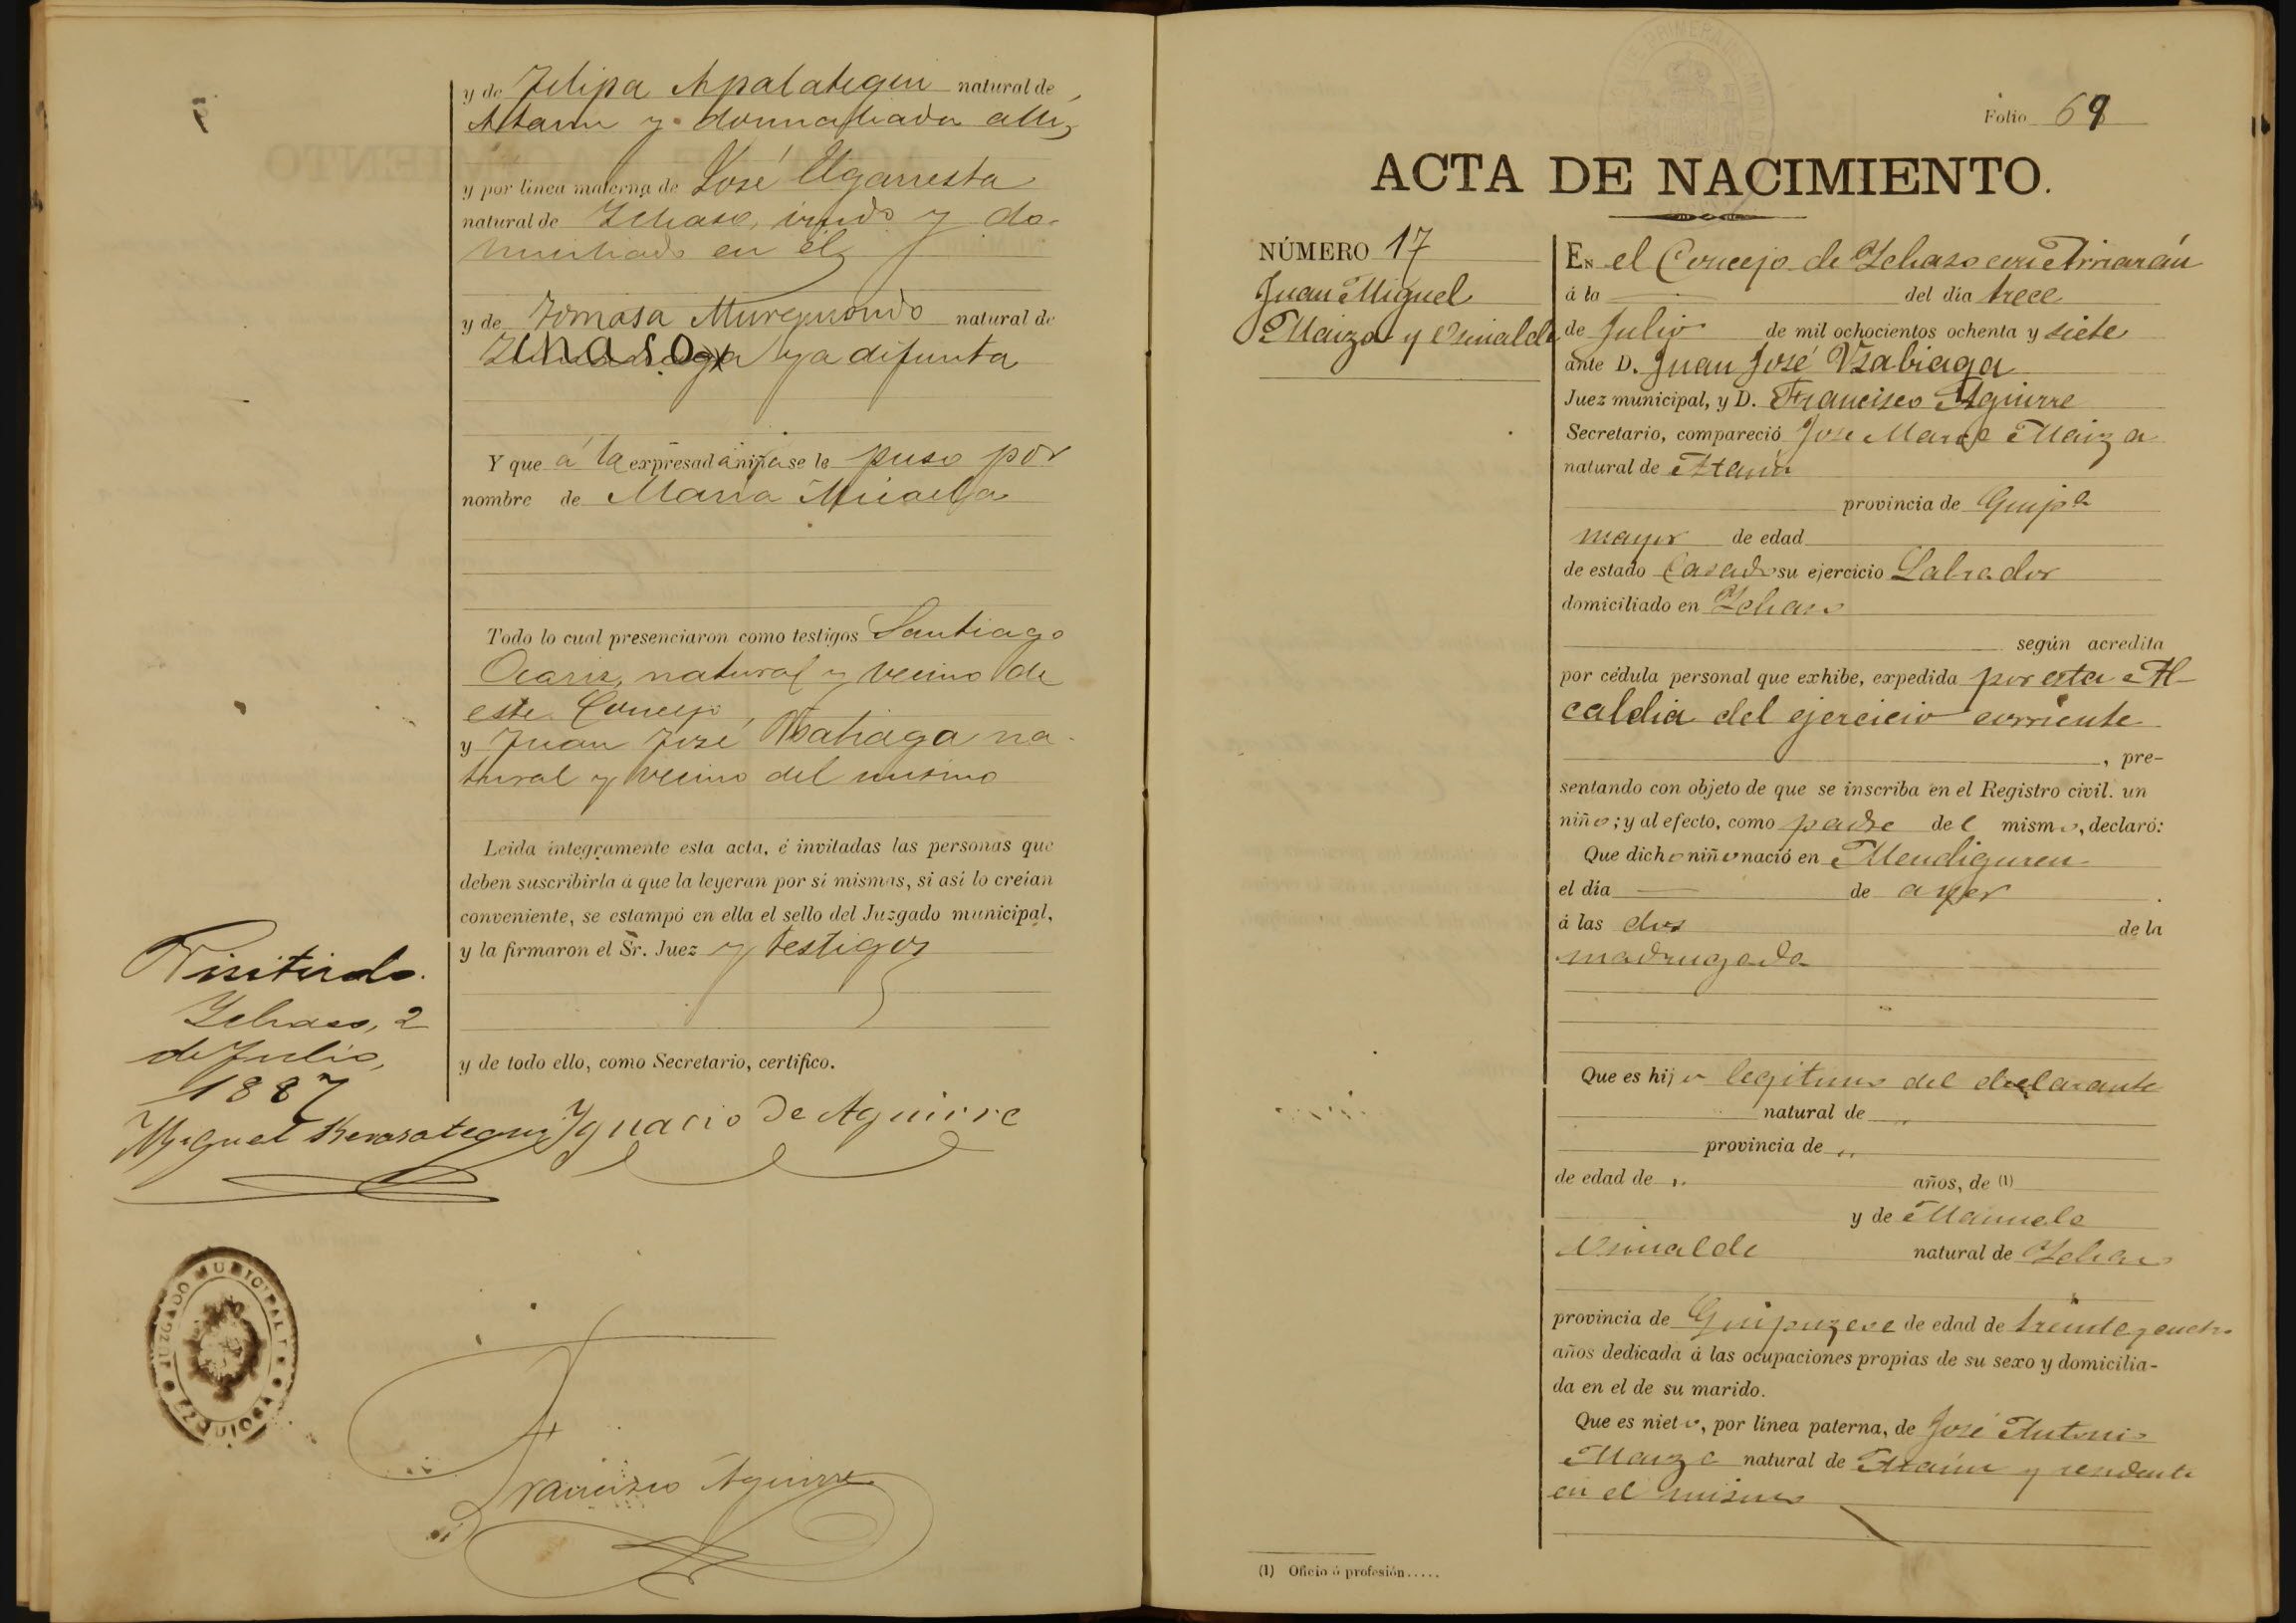 y de Felipa Apalategui natural de
Ataun y domiciliada allí
y por línea materna de José Ugarresta
natural de Ichaso, viudo y do-
miciliado en él
y de Tomasa Mureguiondo natural de
Ichaso ya difunta
Y que á la expresada niña se le puso por
nombre de María Micaela
Todo lo cual presenciaron como testigos Santiago
Ocariz, natural y vecino de
este Concejo
y Juan José Usabiaga na-
tural y vecino del mismo
Leida integramente esta acta, é invitadas las personas que
deben suscribirla á que la leyeran por sí mismas, si así lo creían
conveniente, se estampó en ella el sello del Juzgado municipal,
y la firmaron el Sr. Juez y testigos
y de todo ello, como Secretario, certifico.
Visitado.
Ichaso, 2
de Julio,
1887
Miguel Berasategui
Ignacio de Aguirre
JUZGADO MUNICIPAL
Francisco Aguirre
Folio 69
ACTA DE NACIMIENTO.
NÚMERO 17
Juan Miguel
Maiza y Usinalde
En el Concejo de Ichaso con Arriarán
á la del día trece
de Julio de mil ochocientos ochenta y siete
ante D. Juan José Usabiaga
Juez municipal, y D. Francisco Aguirre
Secretario, compareció José María Maiza
natural de Ataun
provincia de Guipª
mayor de edad
de estado Casado su ejercicio Labrador
domiciliado en Ichaso
según acredita
por cédula personal que exhibe, expedida por esta Al-
caldia del ejercicio corriente
, pre-
sentando con objeto de que se inscriba en el Registro civil. un
niño; y al efecto, como padre del mismo, declaró:
Que dicho niño nació en Mendiguren
el día de ayer
á las dos de la
madrugada
Que es hijo legitimo del declarante
natural de „
provincia de „
de edad de „ años, de (1)
y de Manuela
Usinalde natural de Ichaso
provincia de Guipuzcoa de edad de treinta y cuatro
años dedicada á las ocupaciones propias de su sexo y domicilia-
da en el de su marido.
Que es nieto, por línea paterna, de José Antonio
Maiza natural de Ataun y residente
en el mismo
(1) Oficio ó profesión.....